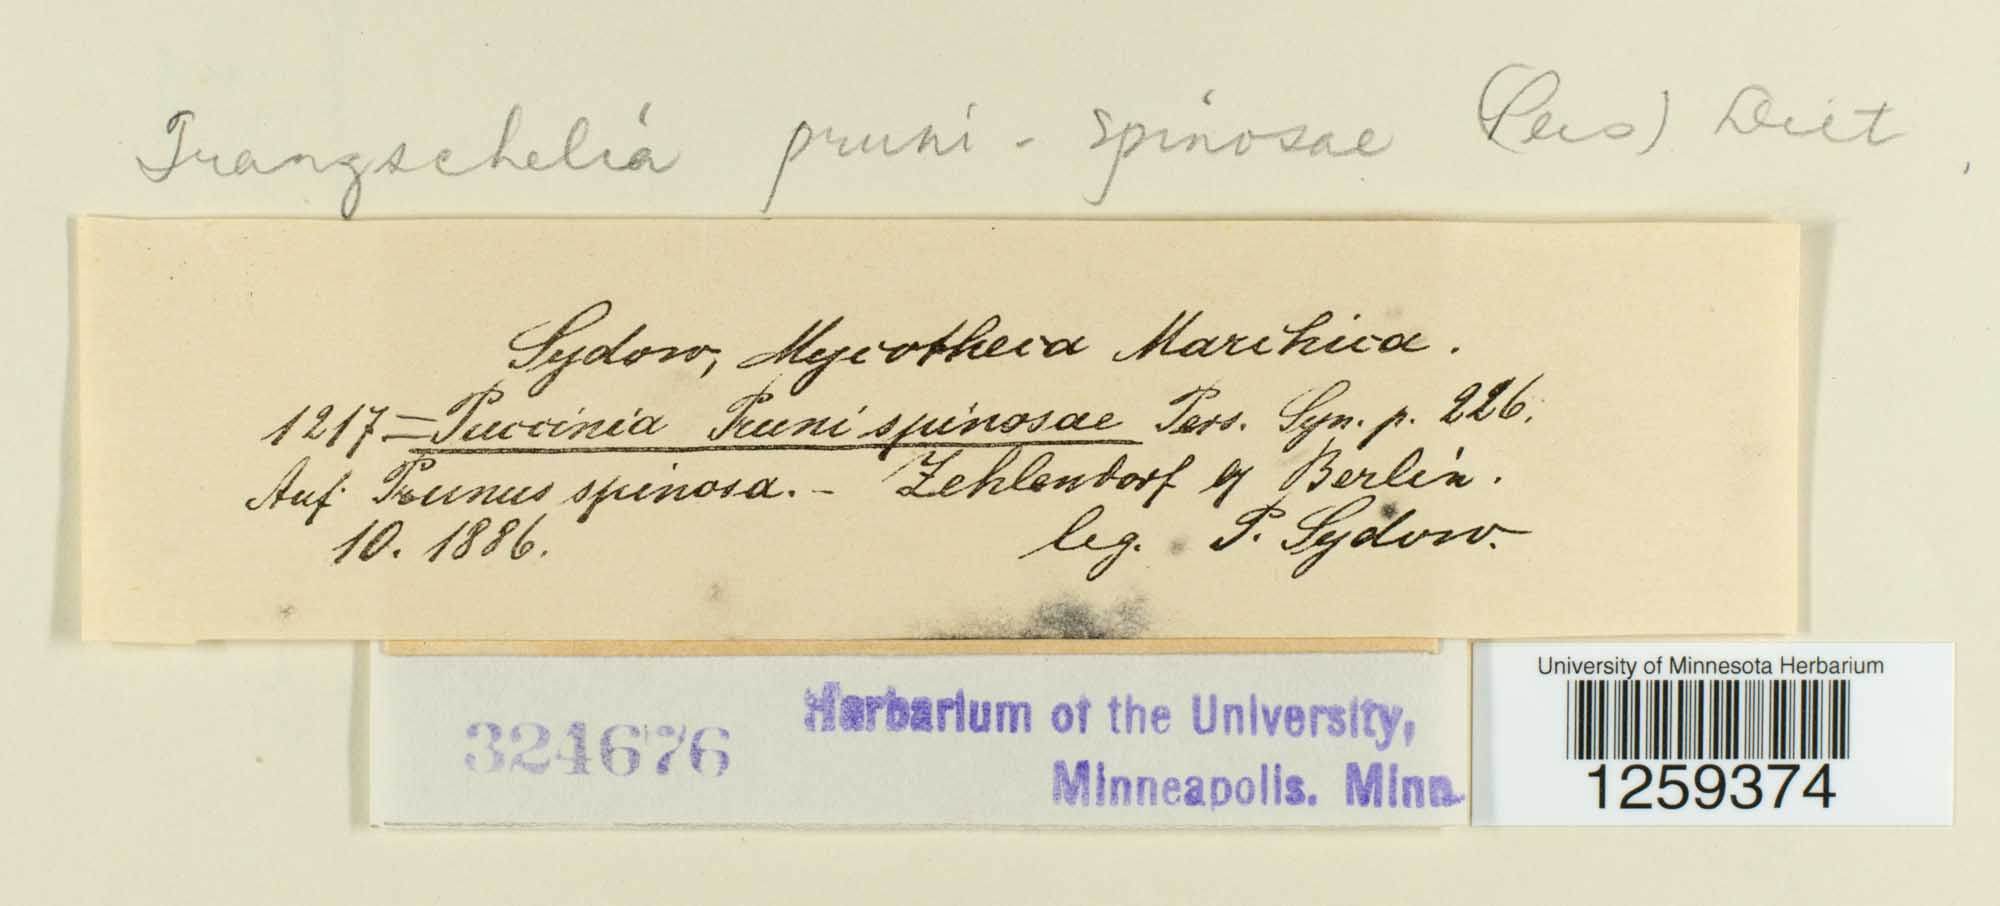 Tranzschelia pruni-spinosae (Pers) Diet
Sydow, Mycotheca Marchica.
1217 = Puccinia Pruni spinosae Pers. Syn. p. 226.
Auf Prunus spinosa. - Zehlendorf b/ Berlin.
10. 1886.
leg. P. Sydow.
324676
Herbarium of the University,
Minneapolis. Minn.
University of Minnesota Herbarium
1259374